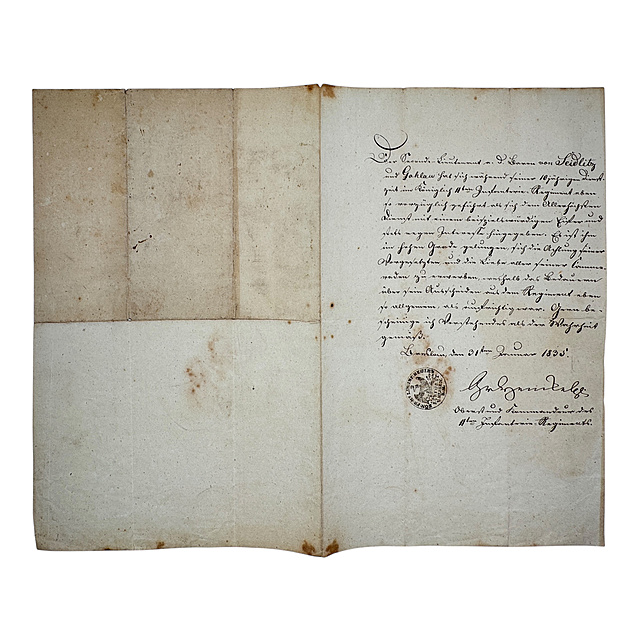 Der Seconde-Lieutenant a. D. Baron von Seidlitz
und Gohlau hat sich während seiner 10jährigen Dienst-
zeit im Königlich 11ten Infanterie-Regiment eben
so vorzüglich geführt als sich dem Allerhöchsten
Dienst mit einem beispielwürdigen Eifer und
stets regen Interesse hingegeben. Es ist ihm
im hohen Grade gelungen, sich die Achtung seiner
Vorgesetzten und die Liebe aller seiner Camme-
raden zu erwerben, weshalb das Bedauern
über sein Ausscheiden aus dem Regiment eben
so allgemein, als aufrichtig war. Gern be-
scheinige ich Vorstehendes als der Wahrheit
gemäß.
Breslau, den 31ten Januar 1835.
Oberst und Kommandeur des
11ten Infanterie-Regiments.